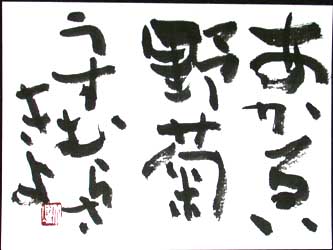 あかるい
野菊
うすむらさ
きよ